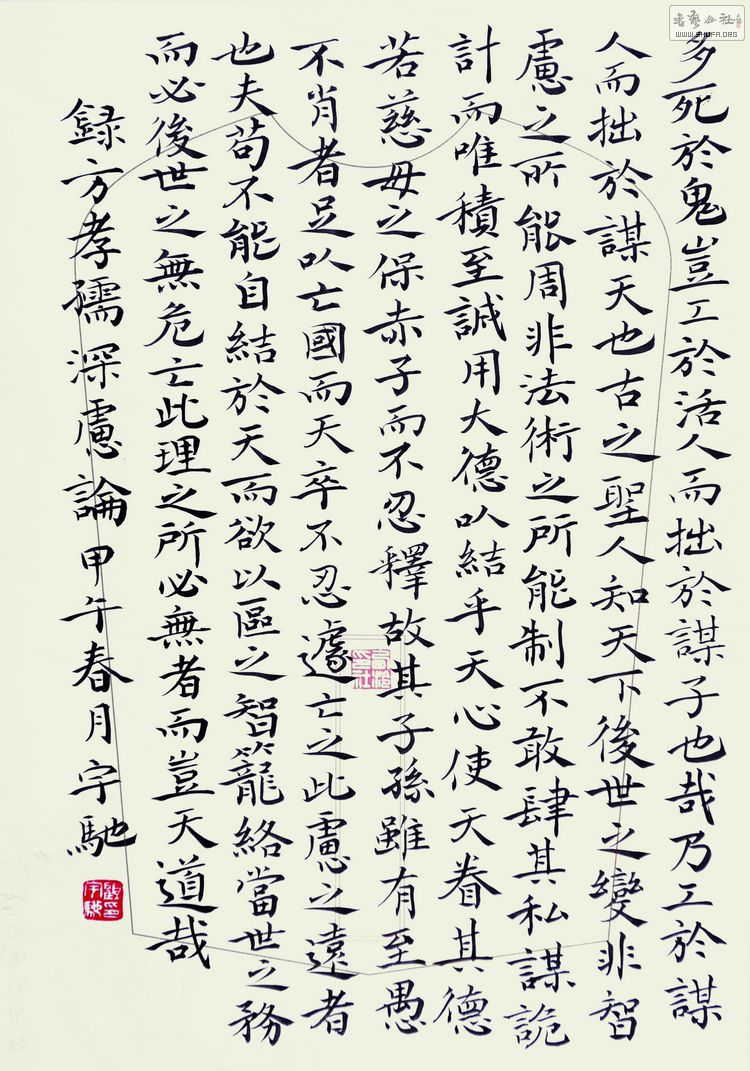 多死於鬼豈工於活人而拙於謀子也哉乃工於謀
人而拙於謀天也古之聖人知天下後世之變非智
慮之所能周非法術之所能制不敢肆其私謀詭
計而唯積至誠用大德以結乎天心使天眷其德
若慈母之保赤子而不忍釋故其子孫雖有至愚
不肖者足以亡國而天卒不忍遽亡之此慮之遠者
也夫苟不能自結於天而欲以區之智籠絡當世之務
而必後世之無危亡此理之所必無者而豈天道哉
録方孝孺深慮論甲午春月宇馳
書藝公社
WWW.SHUFA.ORG